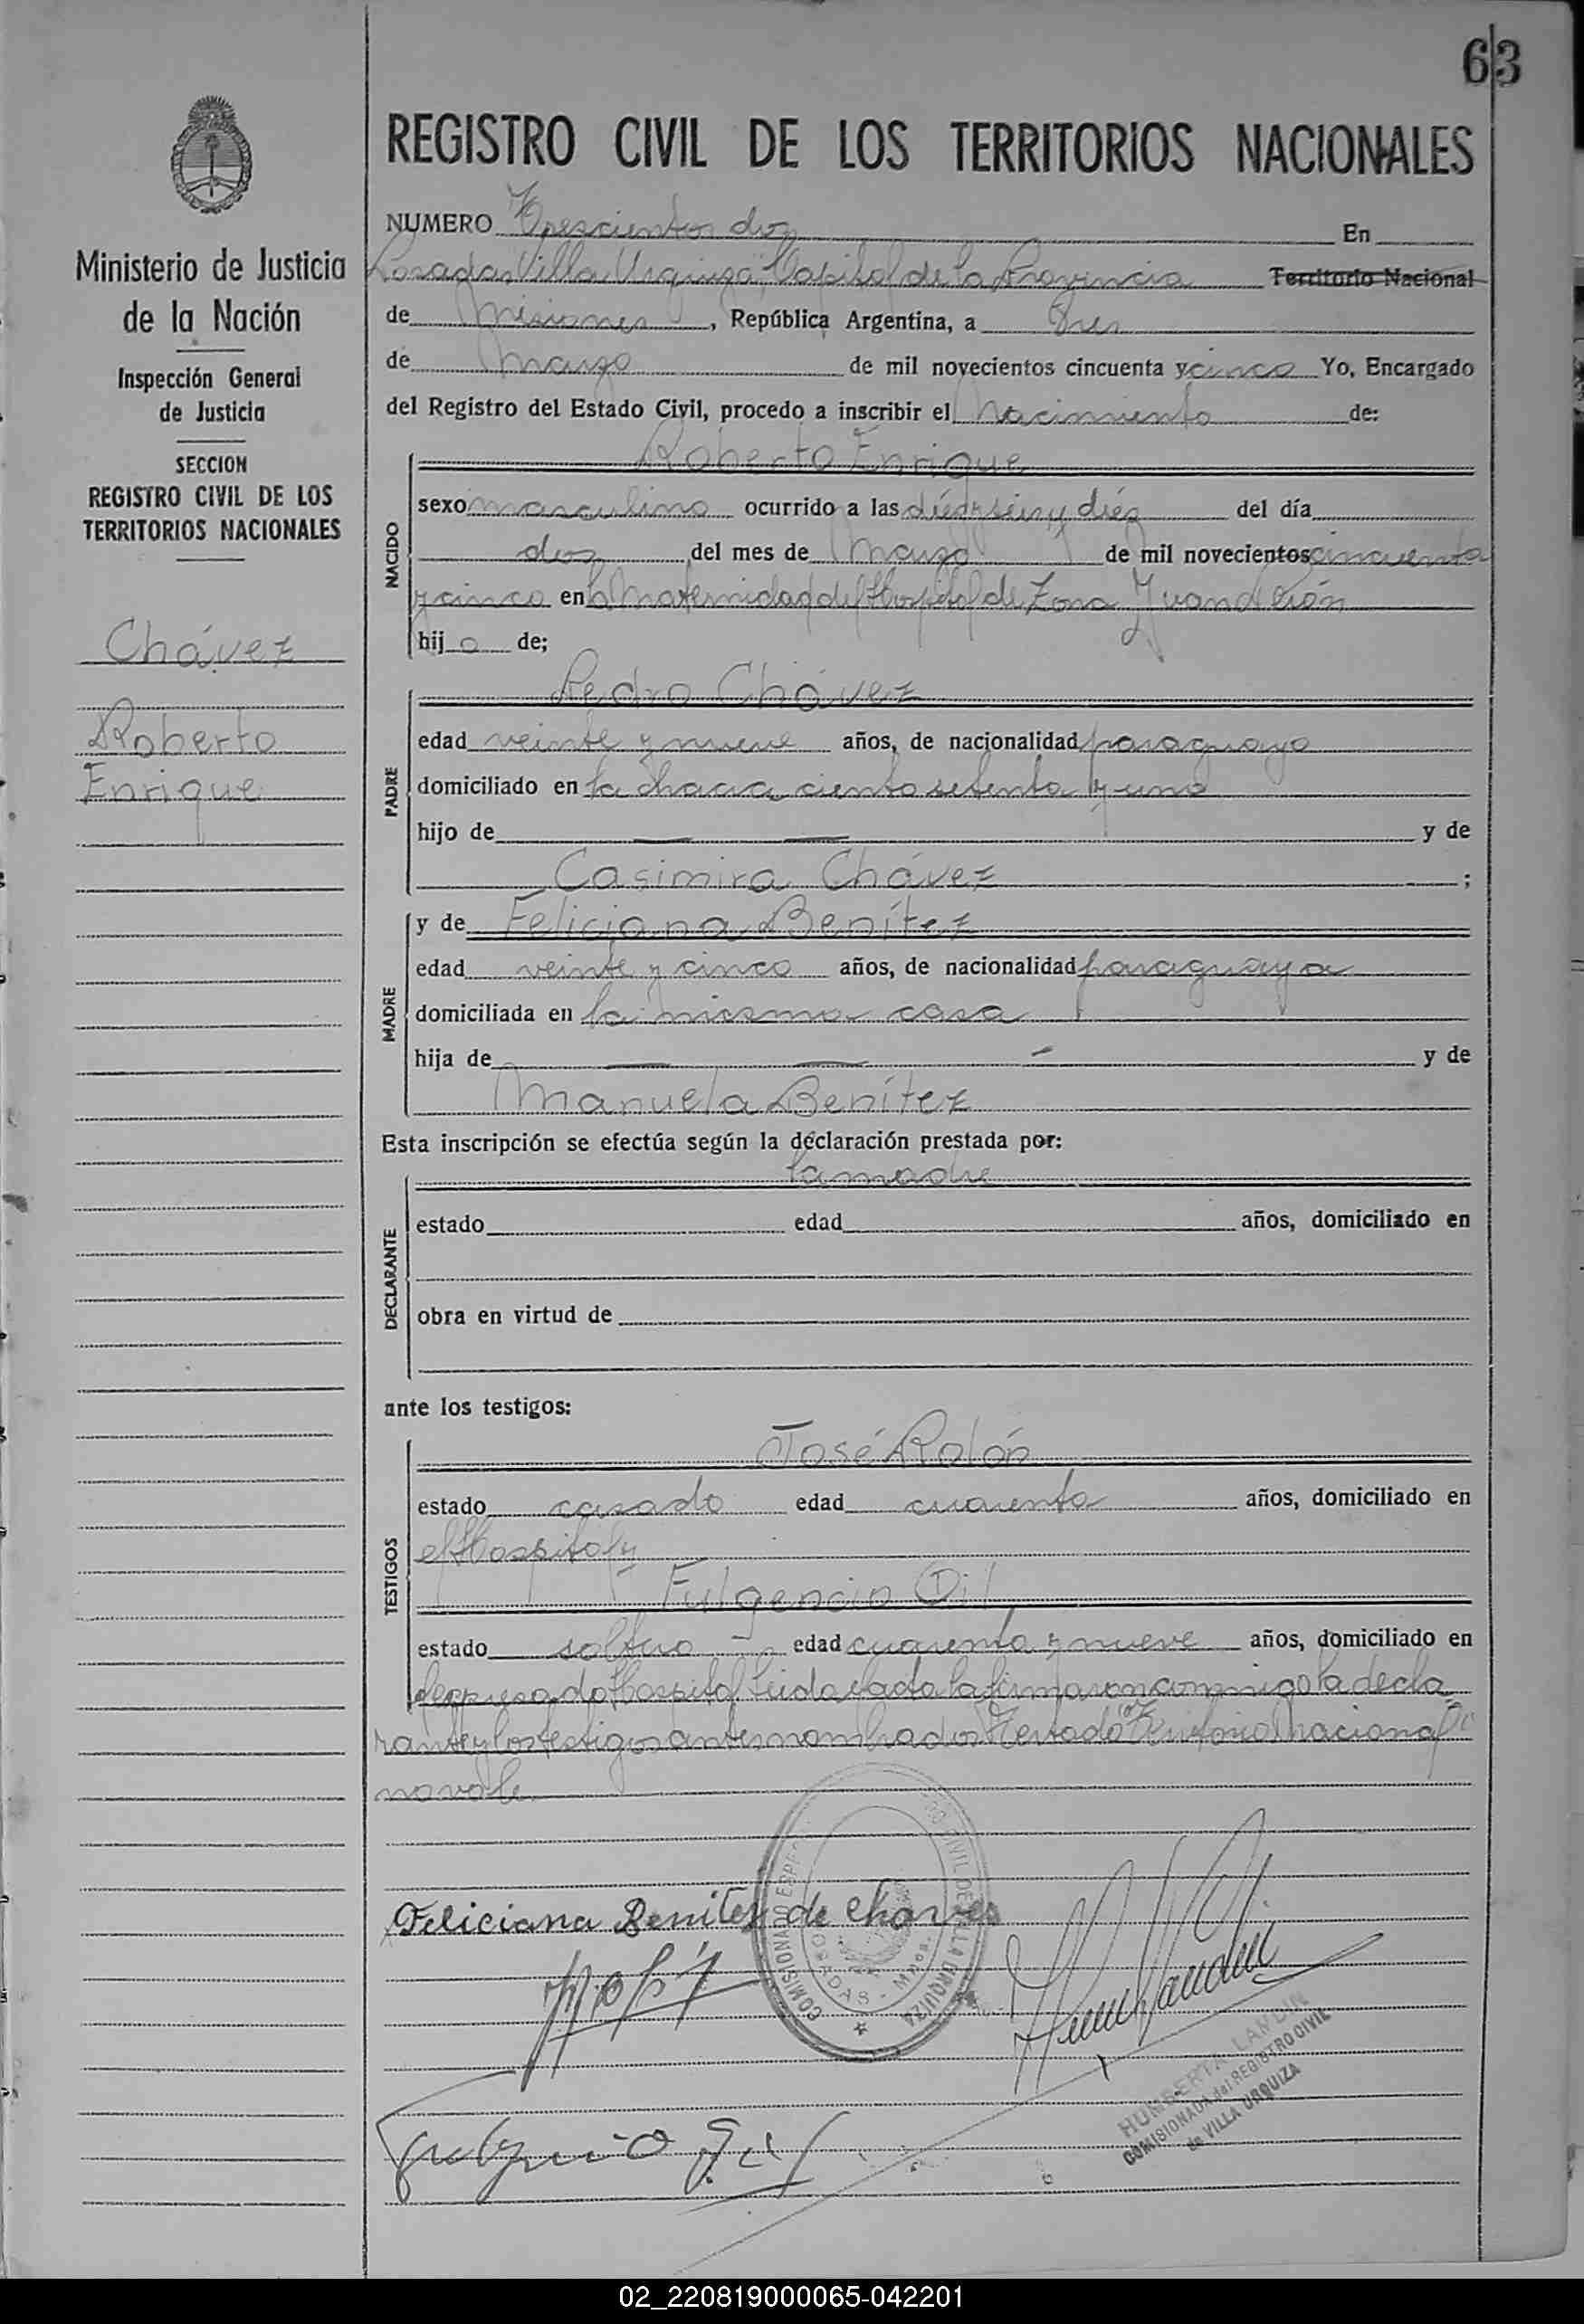 63
REGISTRO CIVIL DE LOS TERRITORIOS NACIONALES
Ministerio de Justicia
de la Nación
Inspección General
de Justicia
SECCION
REGISTRO CIVIL DE LOS
TERRITORIOS NACIONALES
Chávez
Roberto
Enrique
NUMERO Trescientos dos En
Posadas Villa Urquiza, Capital de la Provincia Territorio Nacional
de Misiones, República Argentina, a tres
de marzo de mil novecientos cincuenta y cinco Yo, Encargado
del Registro del Estado Civil, procedo a inscribir el Nacimiento de:
NACIDO
Roberto Enrique
sexo masculino ocurrido a las diez del día
dos del mes de Marzo de mil novecientos cincuenta
y cinco en la Maternidad del Hospital de Zona Juan Perón
hijo de;
PADRE
Pedro Chávez
edad veinte y nueve años, de nacionalidad paraguayo
domiciliado en la chacra ciento setenta y uno
hijo de — — y de
Casimira Chávez ;
MADRE
y de Feliciana Benítez
edad veinte y cinco años, de nacionalidad paraguaya
domiciliada en la misma casa
hija de — — - y de
Manuela Benítez
Esta inscripción se efectúa según la declaración prestada por:
DECLARANTE
la madre
estado edad años, domiciliado en
obra en virtud de
ante los testigos:
TESTIGOS
José Rolón
estado casado edad cuarenta años, domiciliado en
el Hospital y
Fulgencio Gil
estado soltero edad cuarenta y nueve años, domiciliado en
el expresado Hospital Leida el acta la firmaron conmigo la decla
rante y los testigos antes nombrados Testado "Territorio Nacional"
no vale.
Feliciana Benites de Chaves
COMISIONADO CIVIL DE VILLA URQUIZA
POSADAS - Mnes.
HUMBERTA LANDIN
COMISIONADA del REGISTRO CIVIL
de VILLA URQUIZA
Fulgencio Gil
02_220819000065-042201